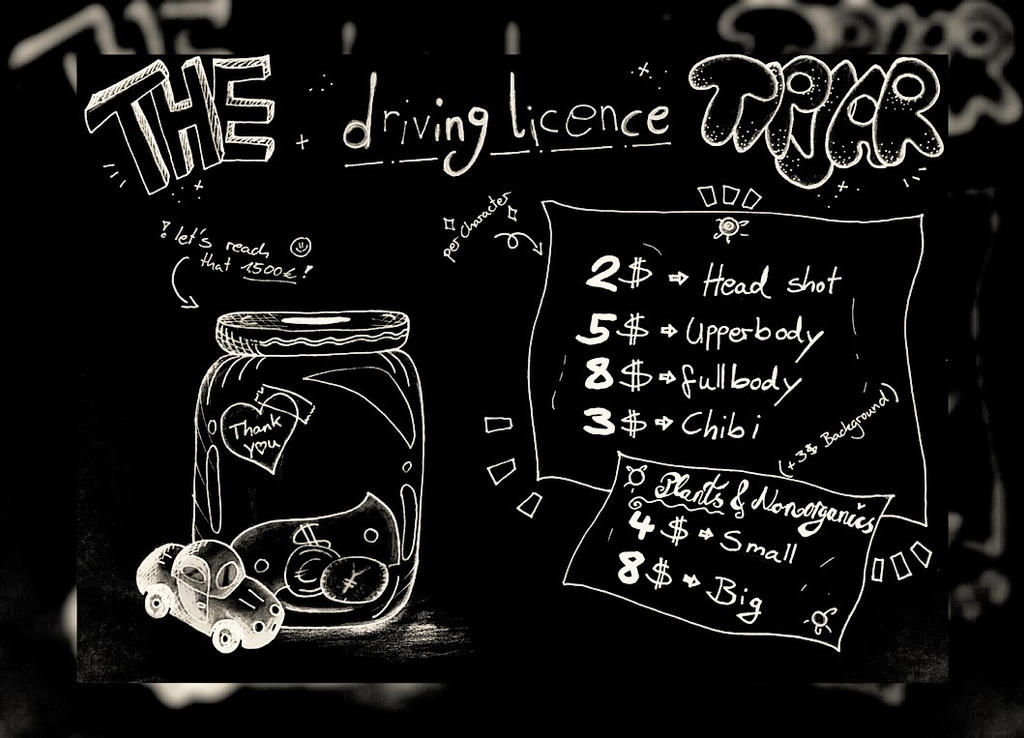 THE driving licence TIPJAR
! let's reach
that 1500€!
per character
2$ ⇨ Head shot
5$ ⇨ Upperbody
8$ ⇨ fullbody
3$ ⇨ Chibi
(+3$ Background)
Thank
you
$
€ ¥
Plants & Nonorganics
4$ ⇨ Small
8$ ⇨ Big